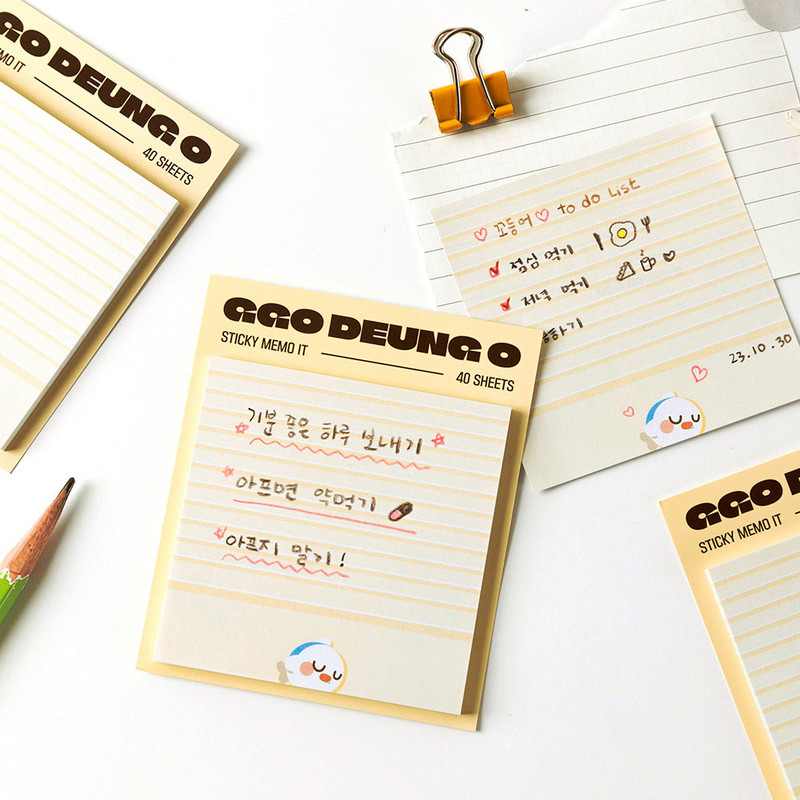 GGO DEUNG O
MO IT
40 SHEETS
♡ 꼬등어 ♡ to do List
점심 먹기
저녁 먹기
하기
23.10.30
GGO DEUNG O
STICKY MEMO IT
40 SHEETS
기분 좋은 하루 보내기
아프면 약먹기
아프지 말기!
GGO D
STICKY MEMO IT